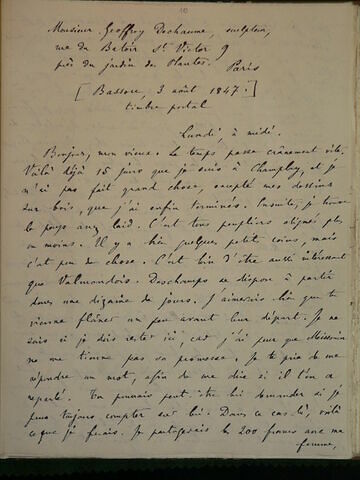 10
Monsieur Geoffroy Dechaume, sculpteur,
rue du Battoir St Victor 9
près du jardin des Plantes. Paris
[Bassou, 3 août 1847.]
timbre postal
Lundi, à midi.
Bonjour, mon vieux. Le temps passe crânement vite.
Voilà déjà 15 jours que je suis à Champlay, et je
n'ai pas fait grand chose, excepté mes dessins
sur bois, que j'ai enfin terminés. Ensuite, je trouve
le pays assez laid. C'est tous peupliers alignés plus
ou moins. Il y a bien quelques petits coins, mais
c'est peu de chose. C'est loin d'être aussi intéressant
que Valmondois. Deschamps se dispose à partir
dans une dizaine de jours. J'aimerais bien que tu
viennes flâner un peu avant leur départ. Je ne
sais si je dois rester ici, car j'ai peur que Meissonier
ne me tienne pas sa promesse. Je te prie de me
répondre un mot, afin de me dire si il t'en a
reparlé. Tu pourrais peut-être lui demander si je
puis toujours compter sur lui. Dans ce cas-là, voilà
ce que je ferais. Je partagerais les 200 francs avec ma
femme,